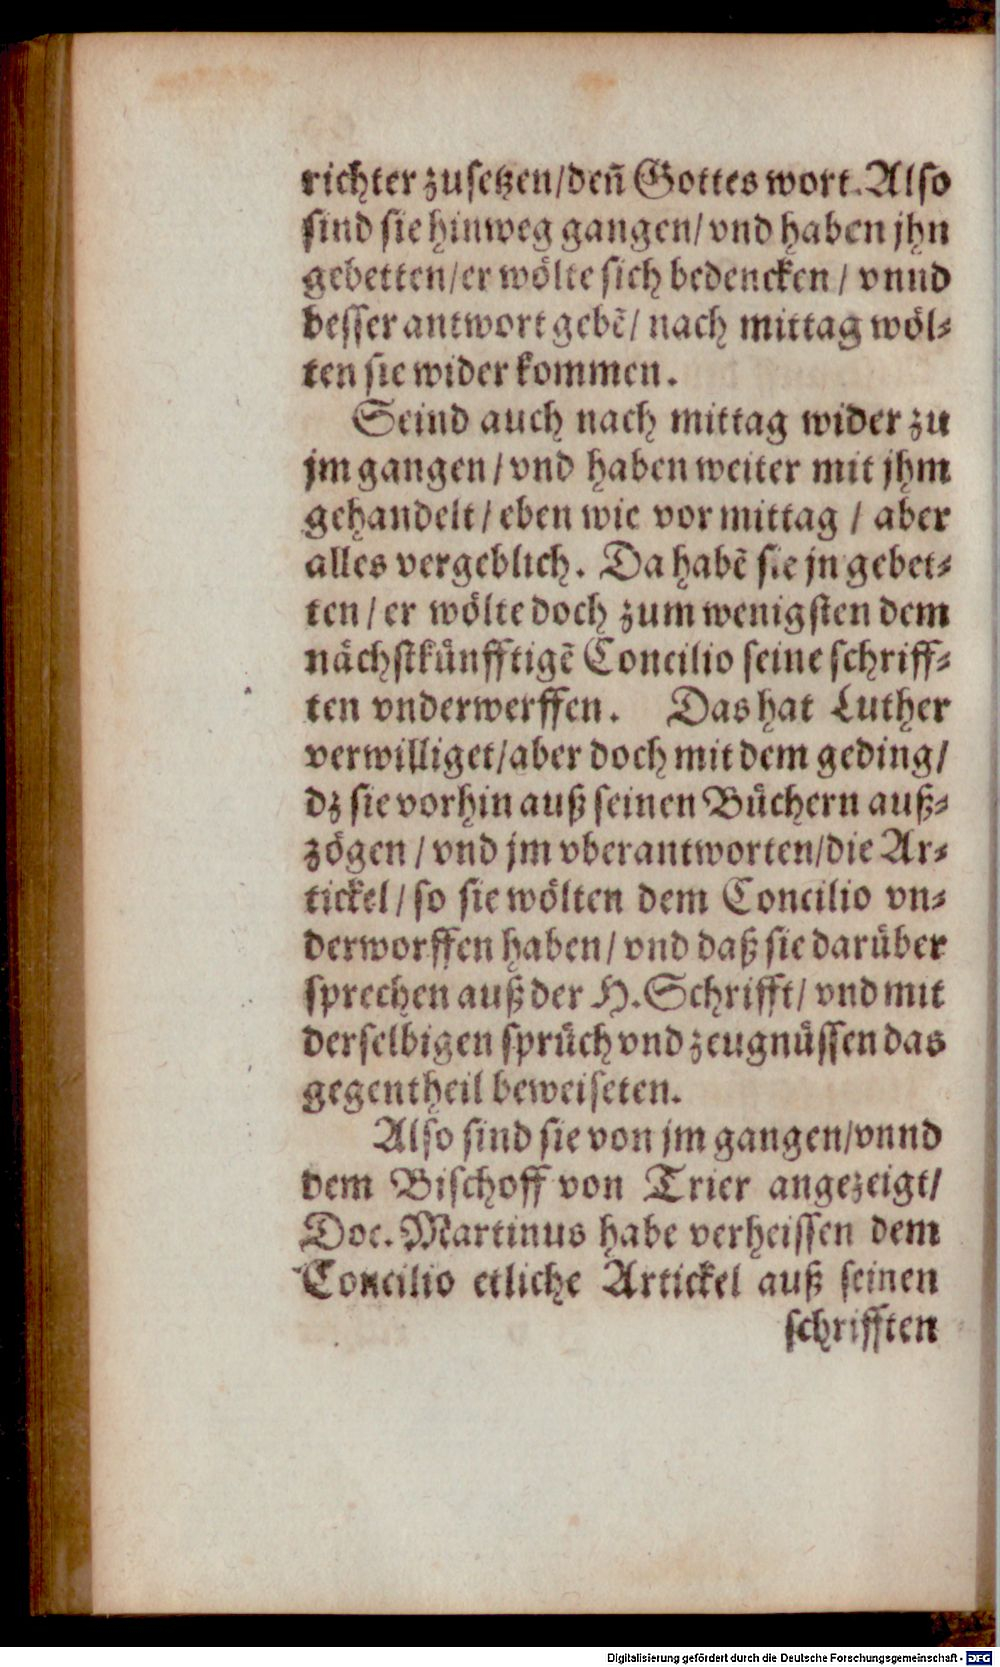 richter zusetzen/deñ Gottes wort. Also
sind sie hinweg gangen/ vnd haben jhn
gebetten/er wölte sich bedencken / vnnd
besser antwort gebē/ nach mittag wöl-
ten sie wider kommen.
Seind auch nach mittag wider zu
jm gangen / vnd haben weiter mit jhm
gehandelt / eben wie vor mittag / aber
alles vergeblich. Da habē sie jn gebet-
ten / er wölte doch zum wenigsten dem
nächstkünfftigē Concilio seine schriff-
ten vnderwerffen. Das hat Luther
verwilliget/aber doch mit dem geding/
dz sie vorhin auß seinen Büchern auß-
zögen / vnd jm vberantworten/die Ar-
tickel / so sie wölten dem Concilio vn-
derworffen haben/ vnd daß sie darüber
sprechen auß der H. Schrifft/ vnd mit
derselbigen sprüch vnd zeugnüssen das
gegentheil beweiseten.
Also sind sie von jm gangen/vnnd
dem Bischoff von Trier angezeigt/
Doc. Martinus habe verheissen dem
Concilio etliche Artickel auß seinen
schrifften
Digitalisierung gefördert durch die Deutsche Forschungsgemeinschaft - DFG